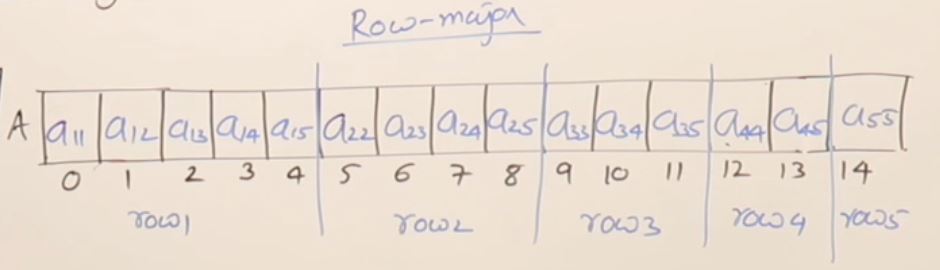 Row-major
A a11 a12 a13 a14 a15 a22 a23 a24 a25 a33 a34 a35 a44 a45 a55
0 1 2 3 4 5 6 7 8 9 10 11 12 13 14
row1 row2 row3 row4 row5